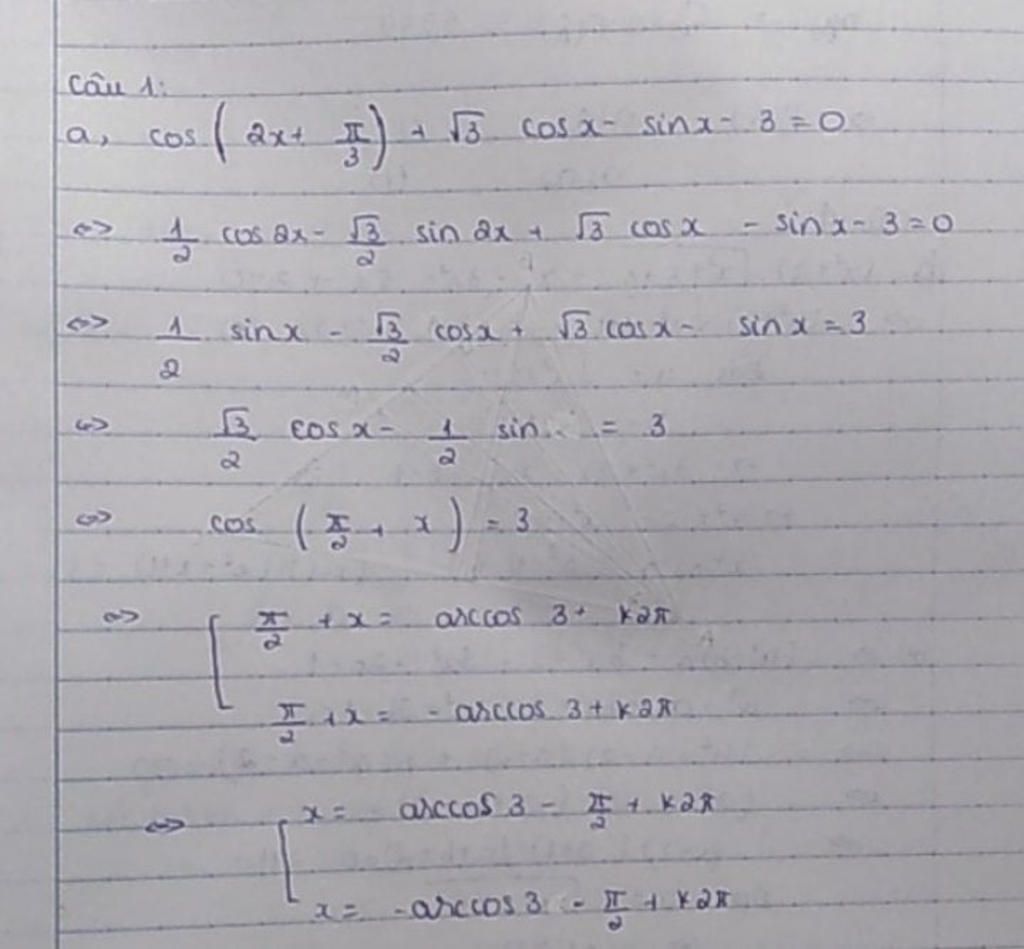 Câu 1:
a, cos ( 2x + π/3 ) + √3 cos x - sin x - 3 = 0
<=> 1/2 cos 2x - √3/2 sin 2x + √3 cos x - sin x - 3 = 0
<=> 1/2 sin x - √3/2 cos x + √3 cos x - sin x = 3
<=> √3/2 cos x - 1/2 sin = 3
<=> cos ( π/2 + x ) = 3
<=> [ π/2 + x = arccos 3 + k2π
π/2 + x = - arccos 3 + k2π
<=> [ x = arccos 3 - π/2 + k2π
x = - arccos 3 - π/2 + k2π